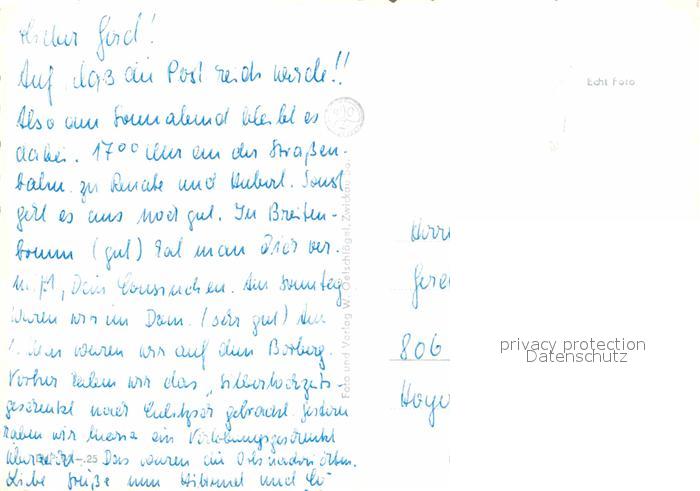 Lieber Gerd!
Auf, daß die Post reich werde!!
Also am Sonnabend bleibt es
dabei. 17⁰⁰ Uhr an der Straßen-
bahn zu Renate und Hubert. Sonst
geht es uns noch gut. In Breiten-
brunn (gut) hat man Dich ver-
mißt, Dein Cousinchen. Am Sonntag
waren wir im Dom. (sehr gut) Am
1. Mai waren wir auf dem Borberg.
Vorher haben wir das „Silberhochzeits-
geschenk nach gebracht. gestern
haben wir ein Verlobungsgeschenk
Das waren die
Liebe Grüße von und
Echt Foto
Foto und Verlag W. Oelschlägel, Zwickau
-.25
Herrn
Gerd
806
Hoye
privacy protection
Datenschutz